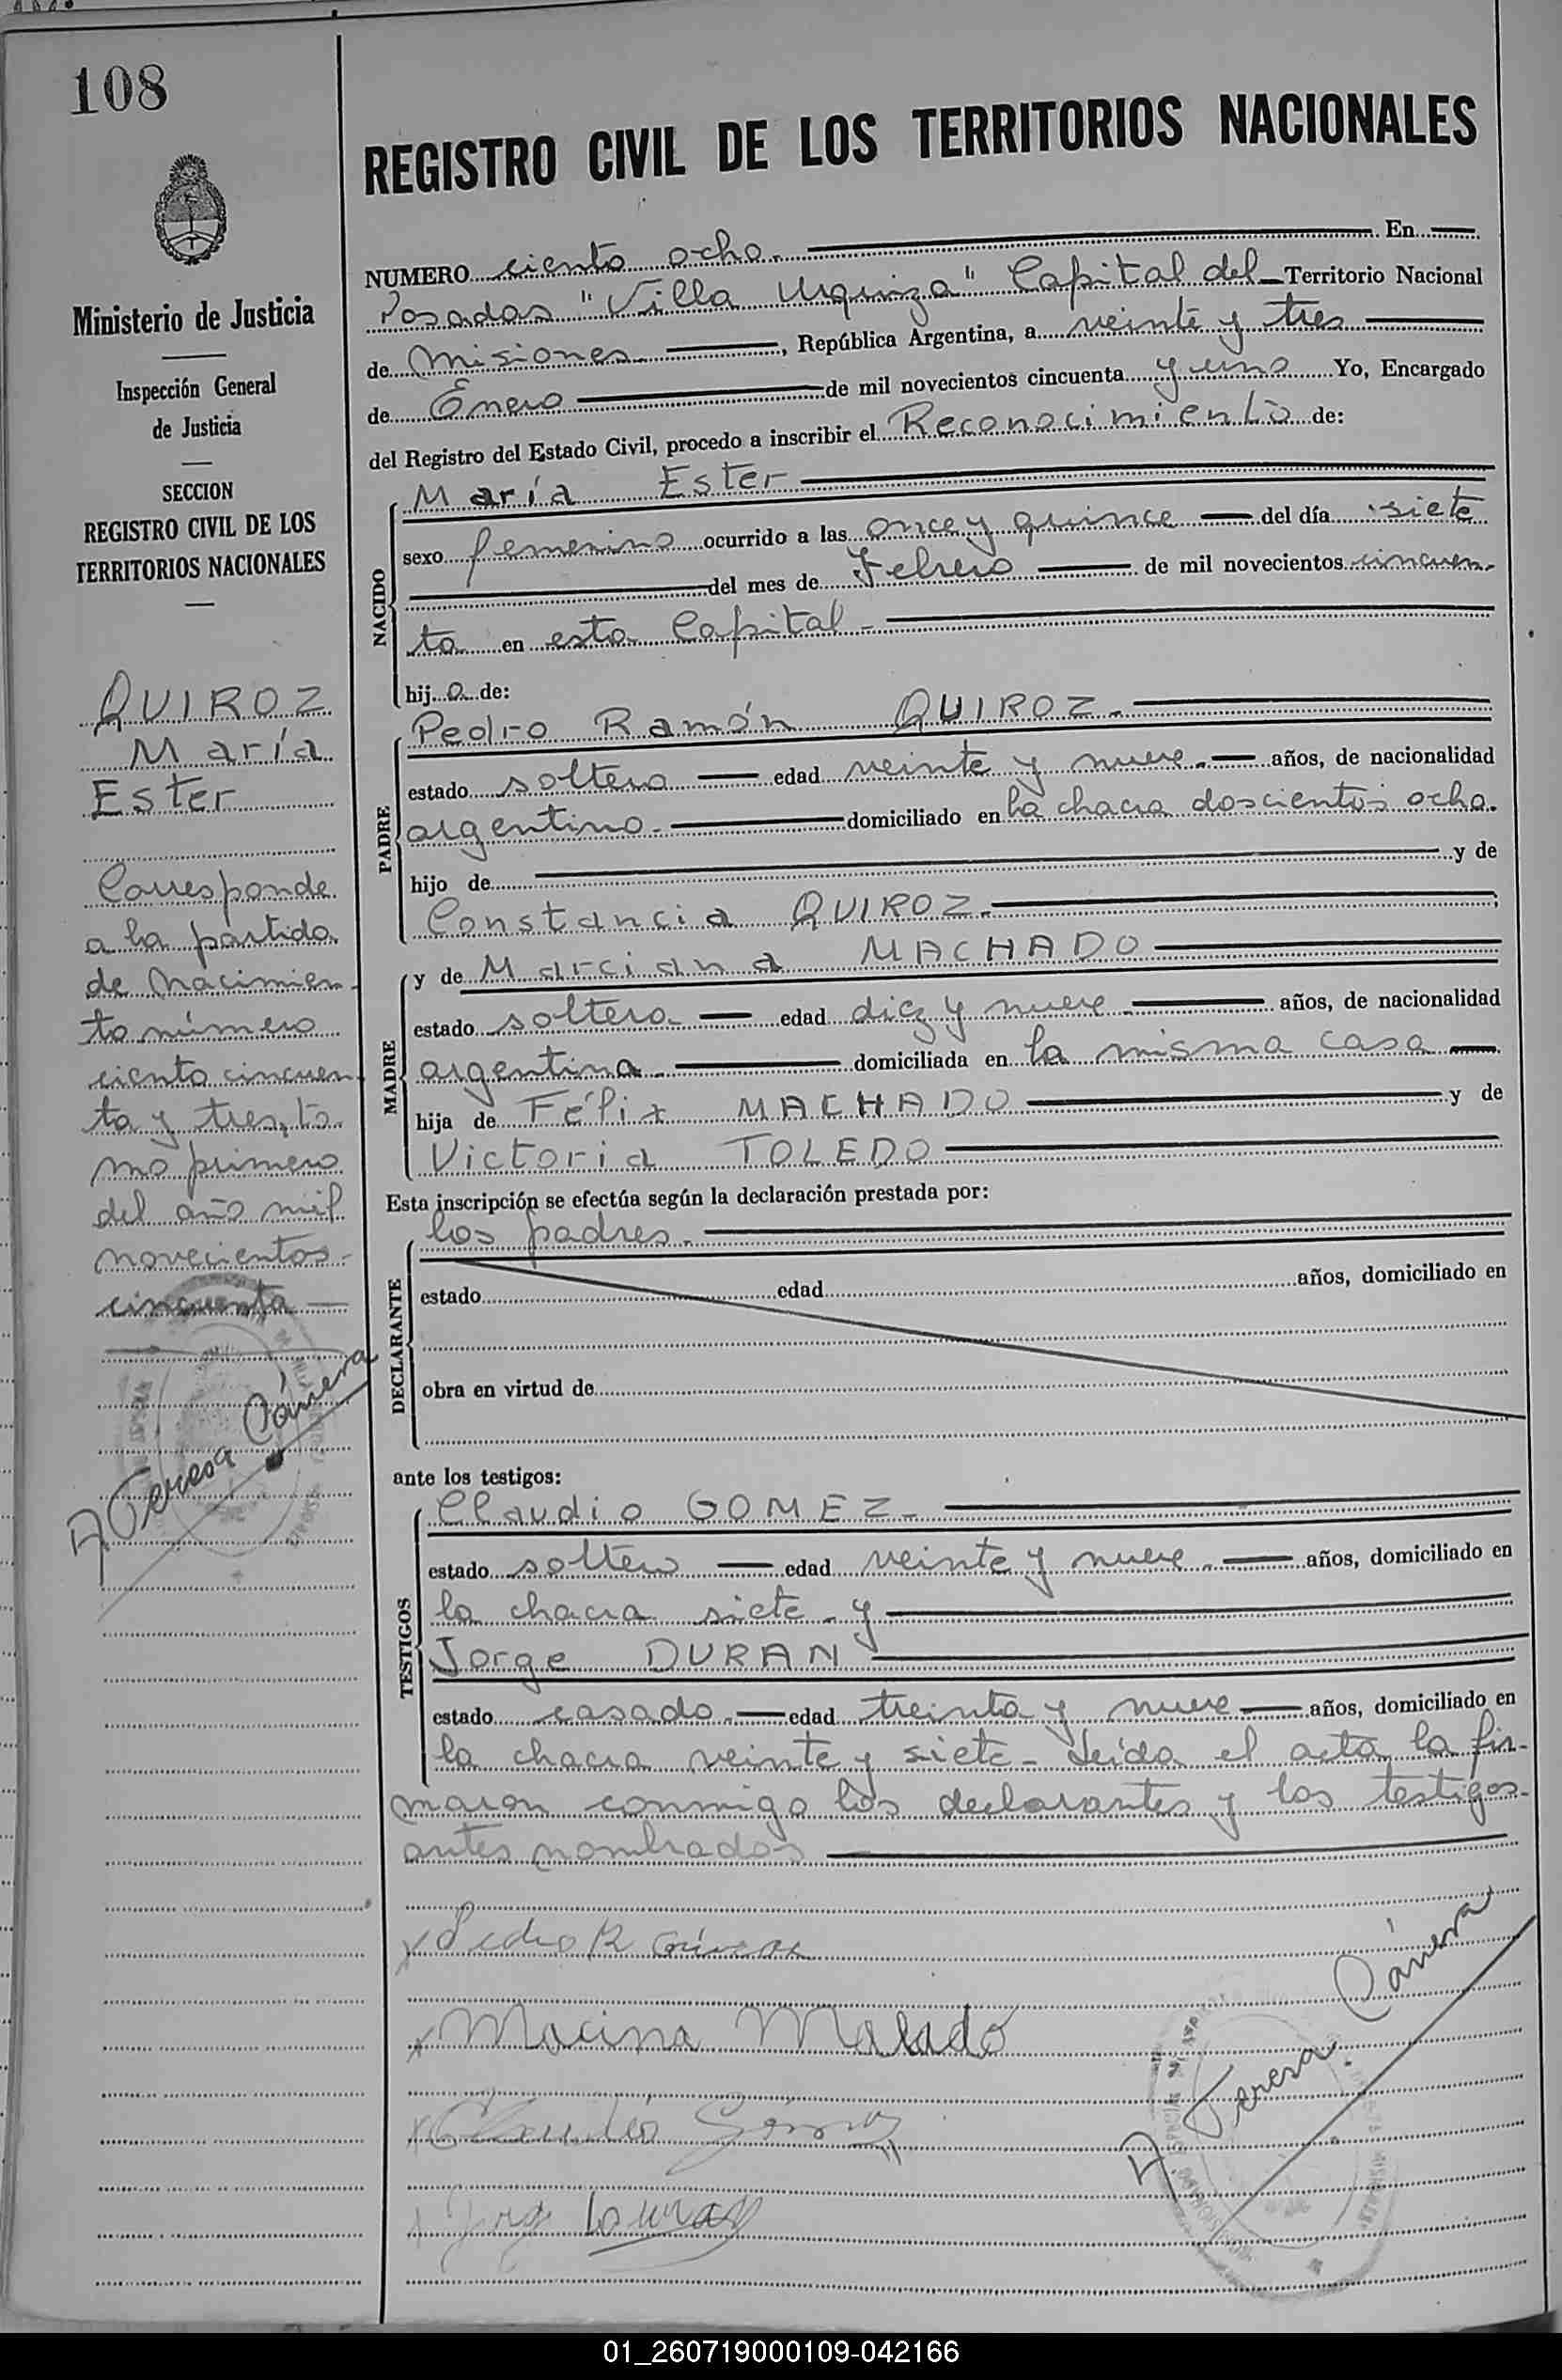 108
REGISTRO CIVIL DE LOS TERRITORIOS NACIONALES
Ministerio de Justicia
Inspección General
de Justicia
SECCION
REGISTRO CIVIL DE LOS
TERRITORIOS NACIONALES
QUIROZ
María
Ester
Corresponde
a la partida
de nacimien-
to número
ciento cincuen
ta y tres, to-
mo primero
del año mil
novecientos
cincuenta
A Teresa Cánera
NUMERO ciento ocho. En
Posadas "Villa Urquiza" Capital del Territorio Nacional
de Misiones, República Argentina, a veinte y tres
de Enero de mil novecientos cincuenta y uno Yo, Encargado
del Registro del Estado Civil, procedo a inscribir el Reconocimiento de:
NACIDO
María Ester
sexo femenino ocurrido a las once y quince del día siete
del mes de Febrero de mil novecientos cincuen-
ta en esta Capital
hija de:
PADRE
Pedro Ramón QUIROZ
estado soltero edad veinte y nueve años, de nacionalidad
argentino domiciliado en la chacra doscientos ocho.
hijo de y de
Constancia QUIROZ
MADRE
y de Marciana MACHADO
estado soltera edad diez y nueve años, de nacionalidad
argentina domiciliada en la misma casa
hija de Félix MACHADO y de
Victoria TOLEDO
Esta inscripción se efectúa según la declaración prestada por:
DECLARANTE
los padres
estado edad años, domiciliado en
obra en virtud de
ante los testigos:
TESTIGOS
Claudio GOMEZ
estado soltero edad veinte y nueve años, domiciliado en
la chacra siete y
Jorge DURAN
estado casado edad treinta y nueve años, domiciliado en
la chacra veinte y siete - Leída el acta la fir-
maron conmigo los declarantes y los testigos
antes nombrados
Pedro R
Macina Malado
Claudio Gómez
A Teresa Cánera
01_260719000109-042166